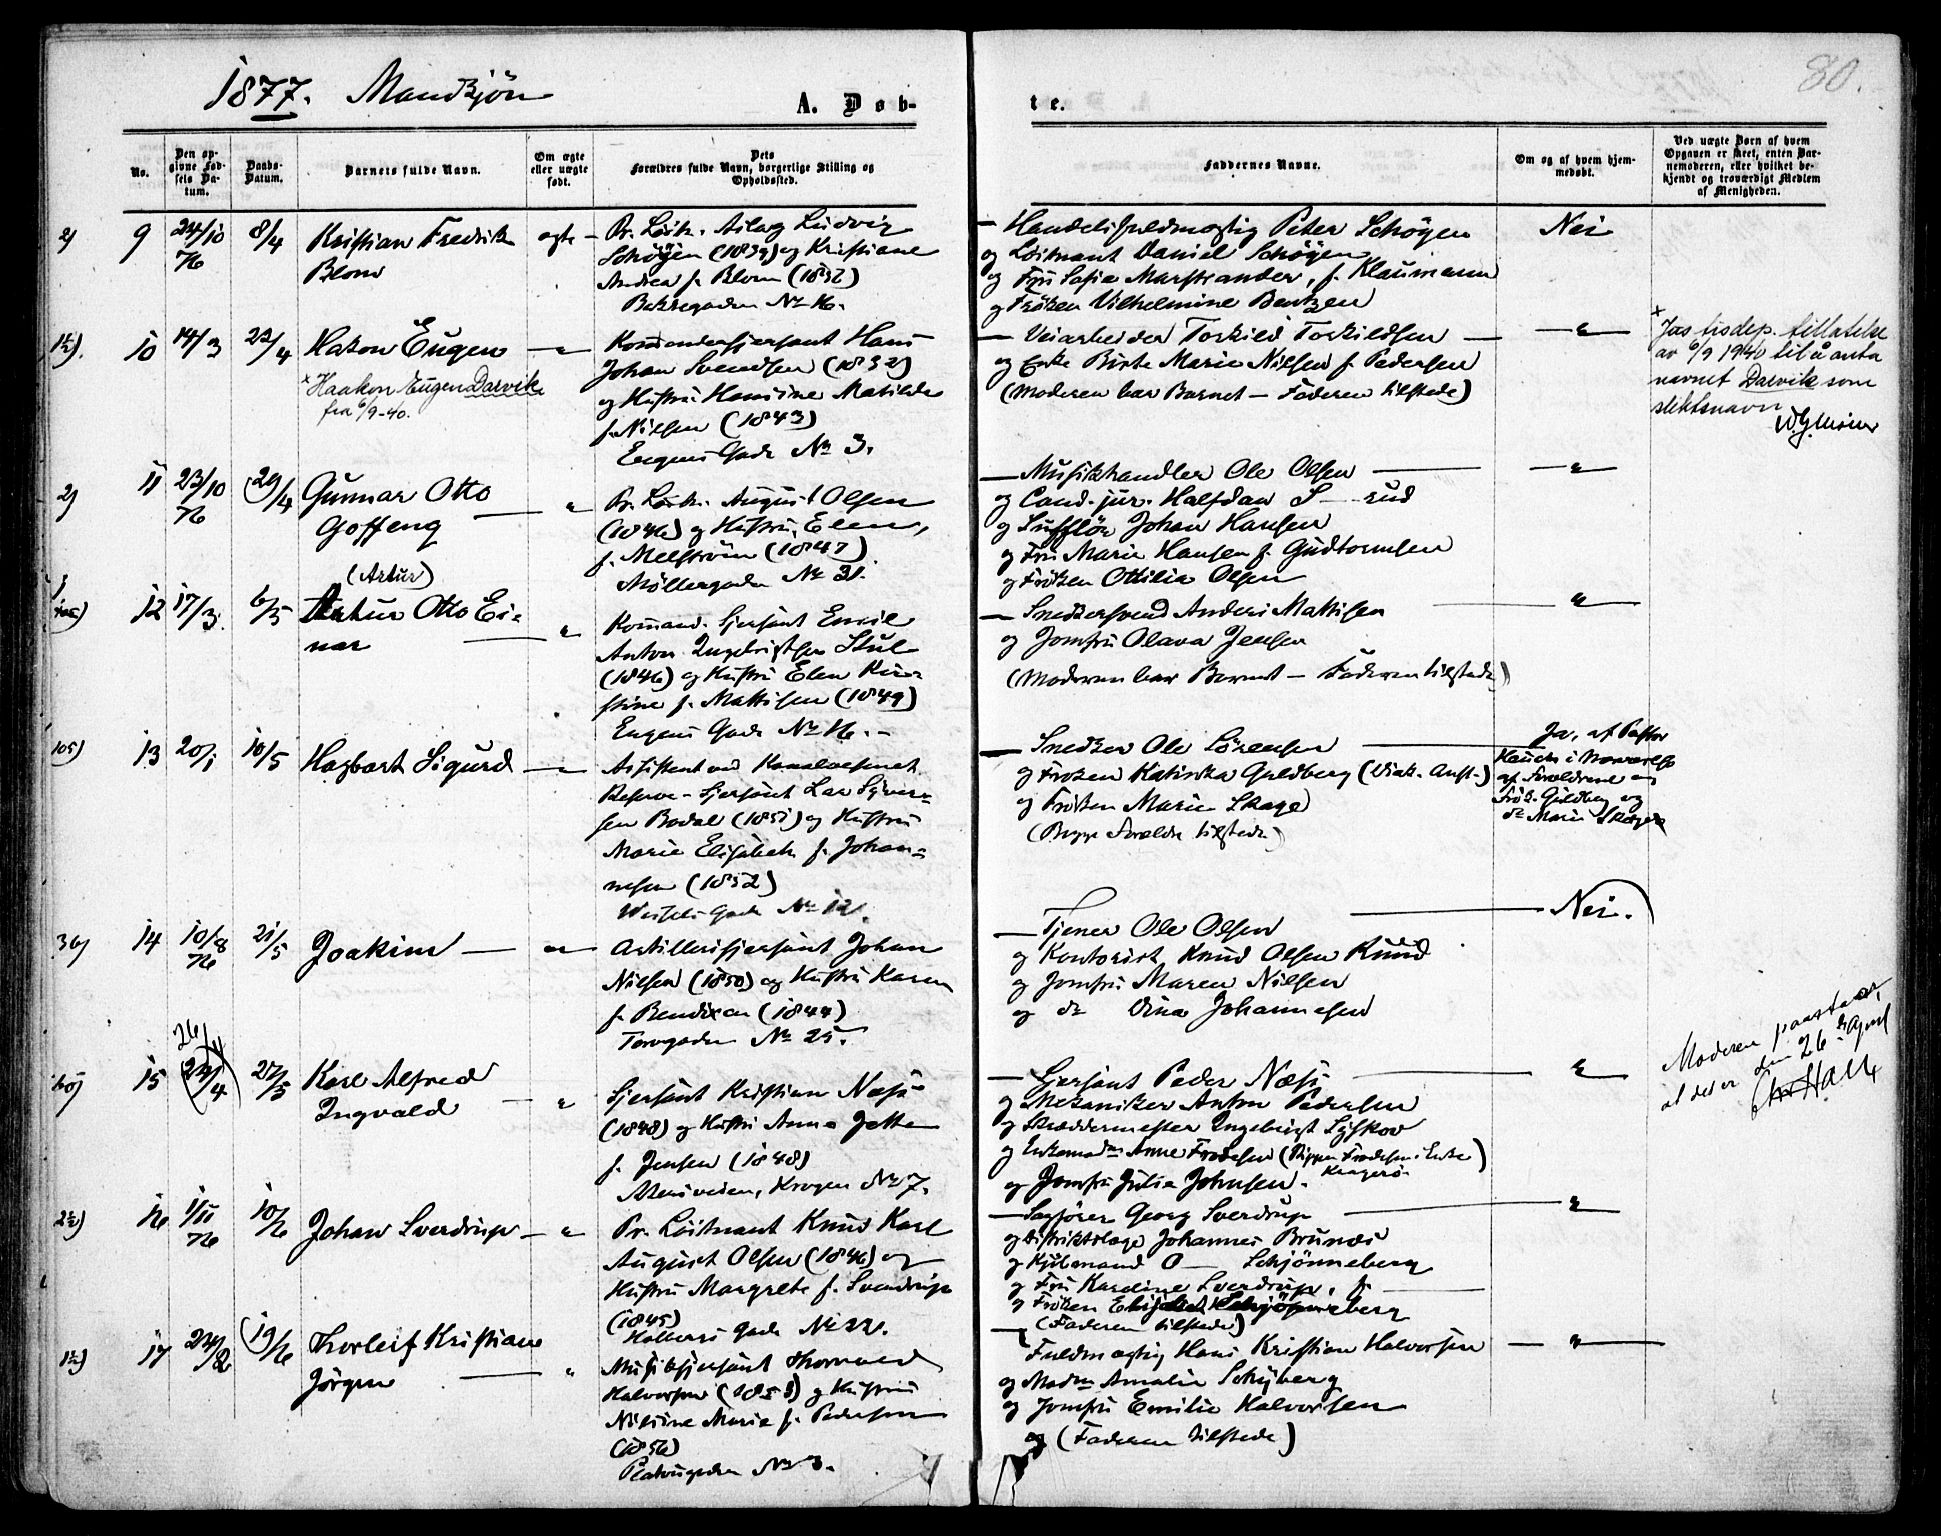 1877. Mandkjön
A. Døb-
te.
80.
No.
Den op-
givne Fød-
sels Da-
tum.
Daabs-
Datum.
Barnets fulde Navn.
Om ægte
eller uægte
født.
Dets
Forældres fulde Navn, borgerlige Stilling og
Opholdssted.
Faddernes Navne.
Om og af hvem hjem-
medøbt.
Ved uægte Børn af hvem
Opgaven er skeet, enten Bar-
nemoderen, eller hvilket be-
kjendt og troværdigt Medlem
af Menigheden.
2) 9 24/10 76 8/4 Kristian Fredrik
Blom
ægte
Pr. Löitn. Ludvig
Schöyen (1839) og Kristiane
Andrea f. Blom (1832)
No 16.
Handelsfuldmægtig Peter Schöyen
og Löitnant Daniel Schöyen
og Fru Sofie Marstrander, f. Klaumann
og Fröken Vilhelmine Bentzen
Nei
1½) 10 14/3 22/4 Hakon Eugen — "
× Haakon Eugen Darvik
fra 6/9-40.
Komandersjersant Hans
Johan Svendsen (1832)
og Hustru Hansine Matilde
f. Nilsen (1843)
Eugens Gade No 3.
— Veiarbeider Torkild Torkildsen —
og Enke Birte Marie Nilsen f. Pedersen
(Moderen bar Barnet — Faderen tilstede)
— " —
× Justisdep. tillatelse
av 6/9 1940 til å anta
navnet Darvik som
slektsnavn
2) 11 23/10 76 29/4 Gunnar Otto
Goffeng — "
Pr. Löitn. August Olsen
(1846) og Hustru Elen,
f. Melström (1847)
Möllergaden No 31.
— Musikhandler Ole Olsen —
og Cand. jur. Halfdan S— rud
og Sufflör Johan Hansen
og Fru Marie Hansen f. Gudtormsen
og Fröken Ottilia Olsen
— " —
12 17/3 6/5 (Artur)
Artur Otto Ei-
nar — "
Komand. Sjersant Emil
Anton Ingebrigtsen Stul
(1846) og Hustru Elen Kir-
stine f. Mattisen (1849)
Eugens Gade No 16.
— Snedkersvend Anders Mattisen —
og Jomfru Olava Jensen
(Moderen bar Barnet — Faderen tilstede)
"
105) 13 20/1 10/5 Hagbart Sigurd — "
Assistent ved Kanalvæsenet
Reserve-Sjersant Lars Syver-
sen Bodal (1851) og Hustru
Marie Elisabeth f. Johan-
nesen (1852)
Wessels Gade No 12.
— Snedker Ole Sörensen —
og Fröken Katinka Guldberg (Diak. Anst.)
og Fröken Marie Skage
(Begge Forældre tilstede)
Ja, af Pastor
af Forældrene og
Frök. Guldberg og
do Marie Skage
36) 14 10/8 76 21/5 Joakim — "
Artillerisjersant Johan
Nilsen (1850) og Hustru Karen
f. Bendixen (1844)
Torvgaden No 25.
— Tjener Ole Olsen —
og Kontorist Knud Olsen Ruud
og Jomfru Maren Nilsen
og do Dina Johannesen
Nei.
26/4
15 (24/4) 27/5 Karl Alfred
Ingvald — "
Sjersant Kristian Næss
(1848) og Hustru Anna Jette
f. Jensen (1848)
Akersveien, Krogen No 7.
— Sjersant Peder Næss —
og Mekaniker Anton Pedersen
og Skræddermester Ingebrigt Lyskov
og Enkemadm Anne Frodesen (Skipper Frodesens Enke)
Kragerö
og Jomfru Julie Johnsen.
"
Moderen paastaar,
at det er den 26de April
Chr. Hall
2½) 16 1/11 76 10/6 Johan Sverdrup — "
Pr. Löitnant Knud Karl
August Olsen (1846) og
Hustru Margrete f. Sverdrup
(1845)
Holbergs Gade No 22.
— Sagförer Georg Sverdrup —
og Distriktslæge Johannes Brunæs
og Kjöbmand O— Schjönneberg
og Fru Karoline Sverdrup, f. —
og Fröken Elisabet Schjönneberg
(Faderen tilstede)
"
1½) 17 24/2 19/6 Thorleif Kristian
Jörgen — "
Musiksjersant Thorvald
Halvorsen (1853) og Hustru
Nilsine Marie f. Pedersen
(1856)
No 3.
Fuldmægtig Hans Kristian Halvorsen
og Madm Amalie Schyberg
og Jomfru Emilie Halvorsen
og (Faderen tilstede)
— " —